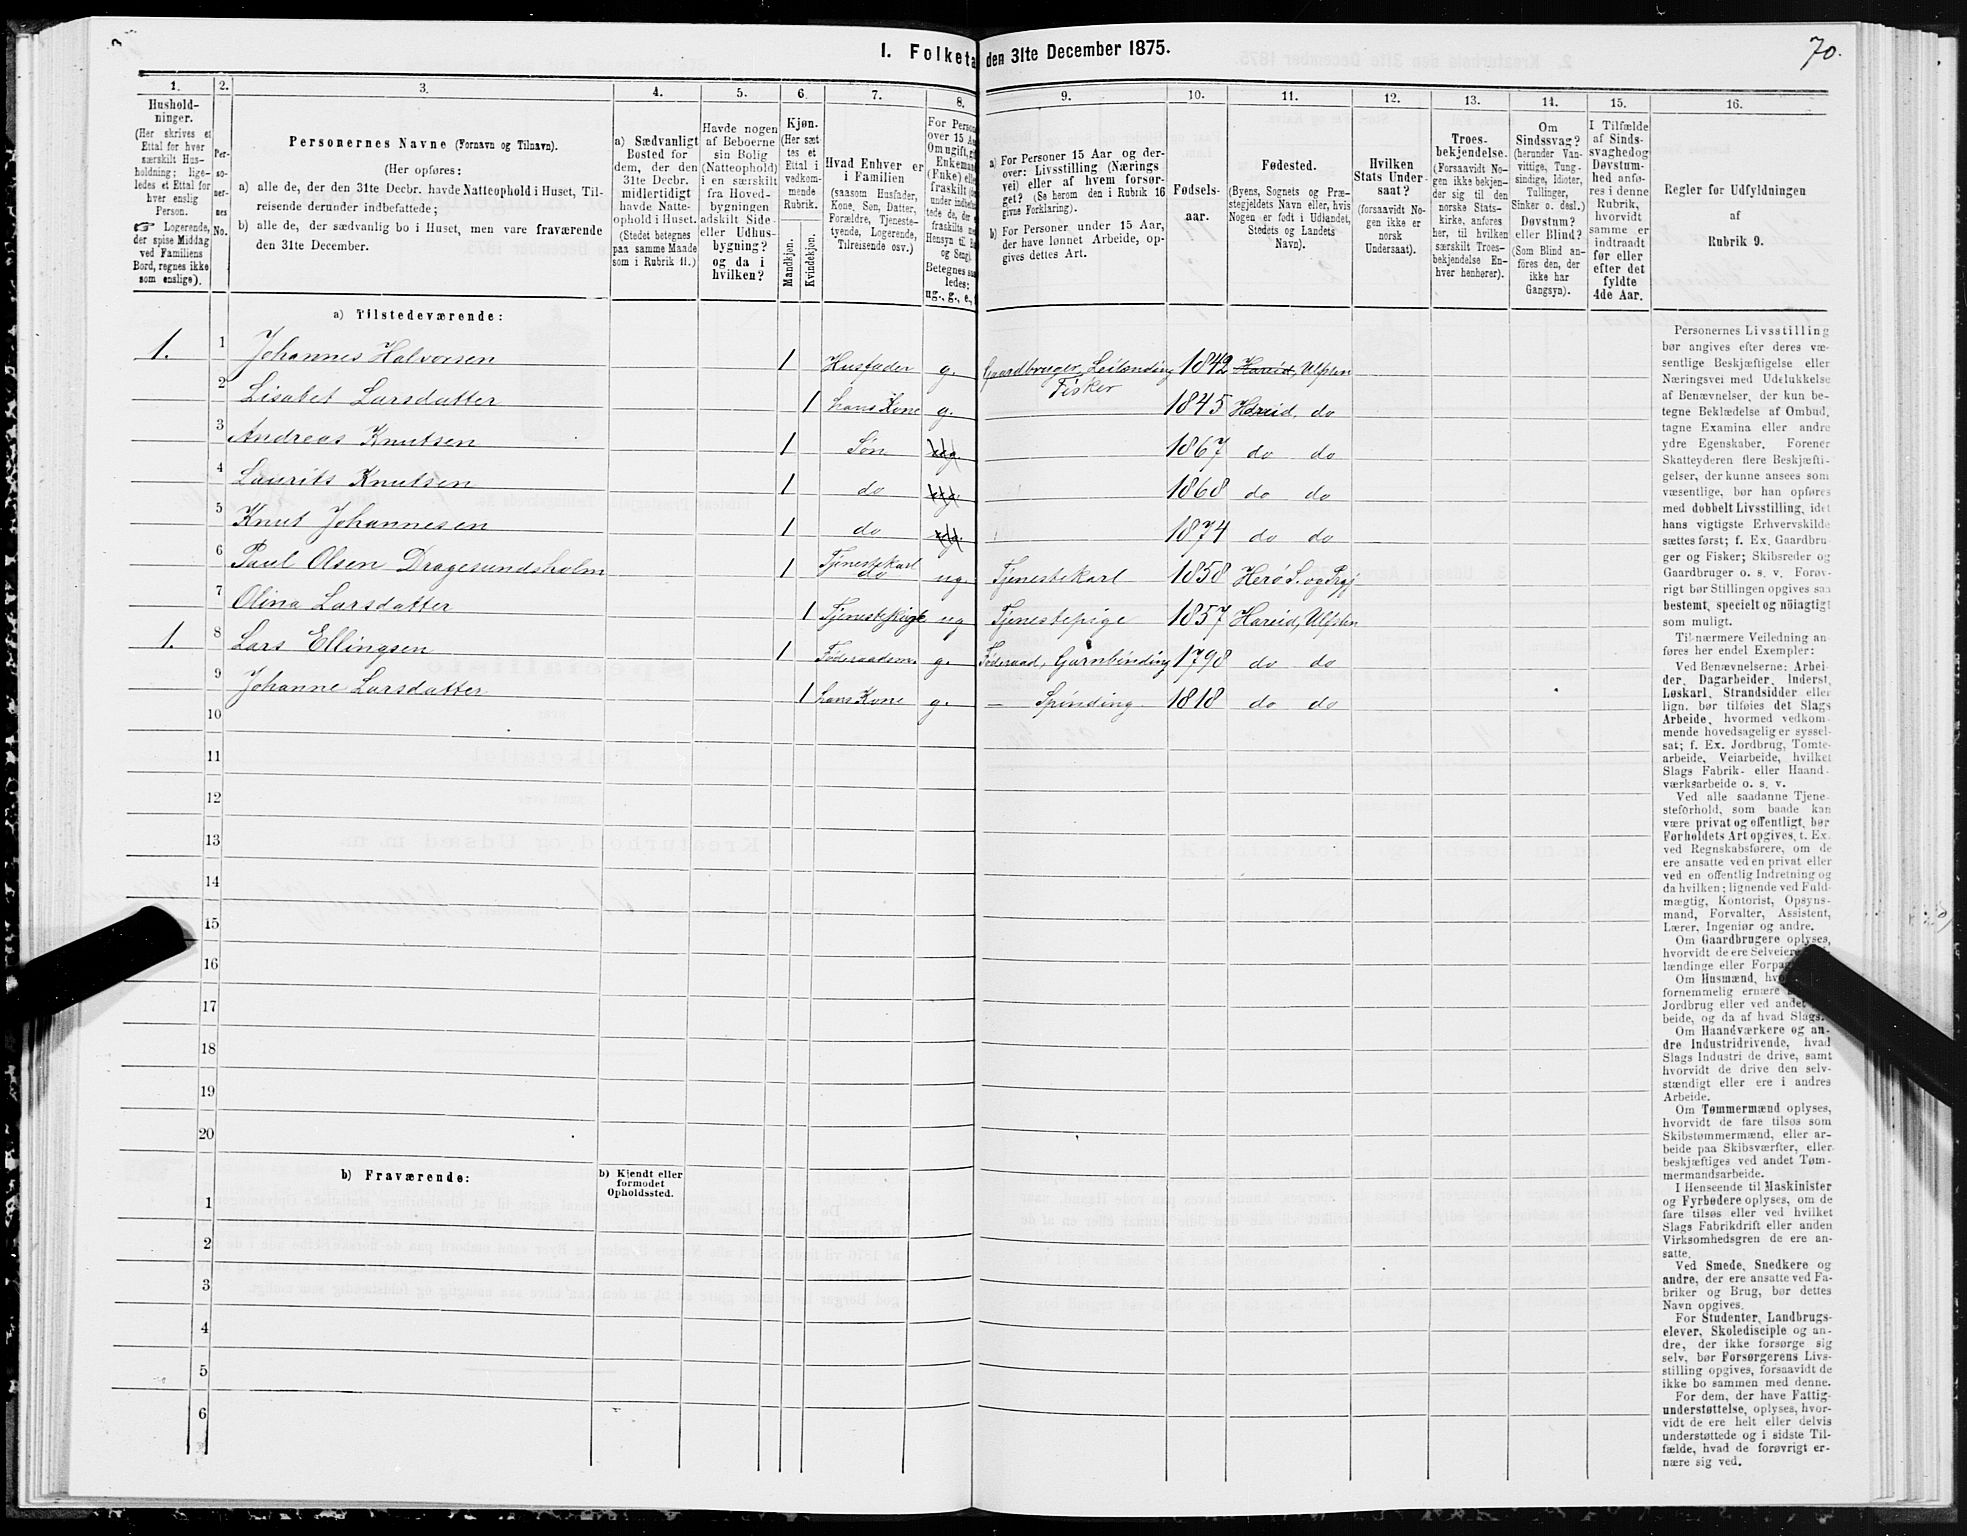 I. Folketa den 31te December 1875.
70.
1. 2. 3. 4. 5. 6. 7. 8. 9. 10. 11. 12. 13. 14. 15. 16.
Hushold-
ninger.
(Her skrives et
Ettal for hver
særskilt Hus-
holdning; lige-
ledes et Ettal for
hver enslig
Person.
☞ Logerende,
der spise Middag
ved Familiens
Bord, regnes ikke
som enslige).
Per-
so-
ner-
nes
No.
Personernes Navne (Fornavn og Tilnavn).
(Her opføres:
a) alle de, der den 31te Decbr. havde Natteophold i Huset, Til-
reisende derunder indbefattede;
b) alle de, der sædvanlig bo i Huset, men vare fraværende
den 31te December.
a) Sædvanligt
Bosted for
dem, der den
31te Decbr.
midlertidigt
havde Natte-
ophold i Huset.
(Stedet betegnes
paa samme Maade
som i Rubrik 11.)
Havde nogen
af Beboerne
sin Bolig
(Natteophold)
i en særskilt
fra Hoved-
bygningen
adskilt Side-
eller Udhus-
bygning?
og da i
hvilken?
Kjøn.
(Her sæt
tes et
Ettal i
vedkom-
mende
Rubrik.
Mandkjøn.
Kvindekjøn.
Hvad Enhver er
i Familien
(saasom Husfader,
Kone, Søn, Datter,
Forældre, Tjeneste-
tyende, Logerende,
Tilreisende osv.)
For Perso
over 15 Aa
Om ugift, gi
Enkeman
(Enke) elle
fraskilt (e
under indbefa
tede de, der e
fraskilte m
Hensyn til B
og Seng).
Betegnes saa
ledes:
ug., g., e.,
a) For Personer 15 Aar og der-
over: Livsstilling (Nærings
vei) eller af hvem forsør-
get? (Se herom den i Rubrik 16
givne Forklaring).
b) For Personer under 15 Aar,
der have lønnet Arbeide, op-
gives dettes Art.
Fødsels-
aar.
Fødested.
(Byens, Sognets og Præ-
stegjeldets Navn eller, hvis
Nogen er født i Udlandet,
Stedets og Landets
Navn).
Hvilken
Stats Under-
saat?
(forsaavidt No-
gen ikke er
norsk
Undersaat).
Troes-
bekjendelse.
(Forsaavidt No-
gen ikke bekjen-
der sig til den
norske Stats-
kirke, anføres
her, til hvilken
særskilt Troes-
bekjendelse En-
hver henhører).
Om
Sindssvag?
(herunder Van-
vittige, Tung-
sindige, Idioter,
Tullinger,
Sinker o. desl.)
Døvstum?
eller Blind?
(Som Blind an-
føres den, der
ikke har
Gangsyn).
I Tilfælde
af Sinds-
svaghed og
Døvstum-
hed anfø-
res i denne
Rubrik,
hvorvidt
samme er
indtraadt
før eller
efter det
fyldte
4de Aar.
Regler for Udfyldningen
af
Rubrik 9.
a) Tilstedeværende:
1. 1 Johannes Halvorsen 1 Husfader g. Gaardbruger, Leilænding Fisker 1842 Hareid, Ulfsten
2 Lisabet Larsdatter 1 hans Kone g. 1845 Hareid, do
3 Andreas Knutsen 1 Søn ug. 1867 do do
4 Laurits Knutsen 1 do ug. 1868 do do
5 Knut Johannesen 1 do ug. 1874 do do
6 Paul Olsen Dragesundsholm 1 Tjenestekarl do ug. Tjenestekarl 1858 Herø S. og Prgj
7 Olina Larsdatter 1 Tjenestepige ug Tjenestepige 1857 Hareid, Ulfsten
1. 8 Lars Ellingsen 1 Føderaadsm. g. Føderaad, Garnbinding 1798 do do
9 Johanne Larsdatter 1 hans Kone g. — Spinding 1818 do do
10
11
12
13
14
15
16
17
18
19
20
b) Fraværende:
b) Kjendt eller
formodet
Opholdssted.
1
2
3
4
5
6
Personernes Livsstilling
bør angives efter deres væ-
sentlige Beskjæftigelse eller
Næringsvei med Udelukkelse
af Benævnelser, der kun be-
tegne Beklædelse af Ombud,
tagne Examina eller andre
ydre Egenskaber. Forener
Skatteyderen flere Beskjæfti-
gelser, der kunne ansees som
væsentlige, bør han opføres
med dobbelt Livsstilling, idet
hans vigtigste Erhvervskilde
sættes først; f. Ex. Gaardbru-
ger og Fisker; Skibsreder og
Gaardbruger o. s. v. Forøv-
rigt bør Stillingen opgives saa
bestemt, specielt og nøiagtigt
som muligt.
Til nærmere Veiledning an-
føres her endel Exempler:
Ved Benævnelserne: Arbei-
der, Dagarbeider, Inderst,
Løskarl, Strandsidder eller
lign. bør tilføies det Slags
Arbeide, hvormed vedkom-
mende hovedsagelig er syssel-
sat; f. Ex. Jordbrug, Tomte-
arbeide, Veiarbeide, hvilket
Slags Fabrik- eller Haand-
værksarbeide o. s. v.
Ved alle saadanne Tjene-
steforhold, som baade kan
være privat og offentligt, bør
Forholdets Art opgives, t. Ex.
ved Regnskabsførere, om de
ere ansatte ved en privat eller
ved en offentlig Indretning og
da hvilken; lignende ved Fuld-
mægtig, Kontorist, Opsyns-
mand, Forvalter, Assistent,
Lærer, Ingeniør og andre.
Om Gaardbrugere oplyses,
hvorvidt de ere Selveiere
lændinge eller Forpa
Om Husmænd, hvo
fornemmelig ernære
Jordbrug eller ved andet
beide, og da af hvad Slags.
Om Haandværkere og an-
dre Industridrivende, hvad
Slags Industri de drive, samt
hvorvidt de drive den selv-
stændigt eller ere i andres
Arbeide.
Om Tømmermænd oplyses,
hvorvidt de fare tilsøs som
Skibstømmermænd, eller ar-
beide paa Skibsværfter, eller
beskjæftiges ved andet Tøm-
mermandsarbeide.
I Henseende til Maskinister
og Fyrbødere oplyses, om de
fare tilsøs eller ved hvilket
Slags Fabrikdrift eller anden
Virksomhedsgren de ere an-
satte.
Ved Smede, Snedkere og
andre, der ere ansatte ved Fa-
briker og Brug, bør dettes
Navn opgives.
For Studenter, Landbrugs-
elever, Skoledisciple og an-
dre, der ikke forsørge sig
selv, bør Forsørgerens Livs-
stilling opgives, forsaavidt de
ikke bo sammen med denne.
For dem, der have Fattig-
understøttelse, oplyses, hvor-
vidt de ere helt eller delvis
understøttede og i sidste Til-
fælde, hvad de forøvrigt er-
nære sig ved.